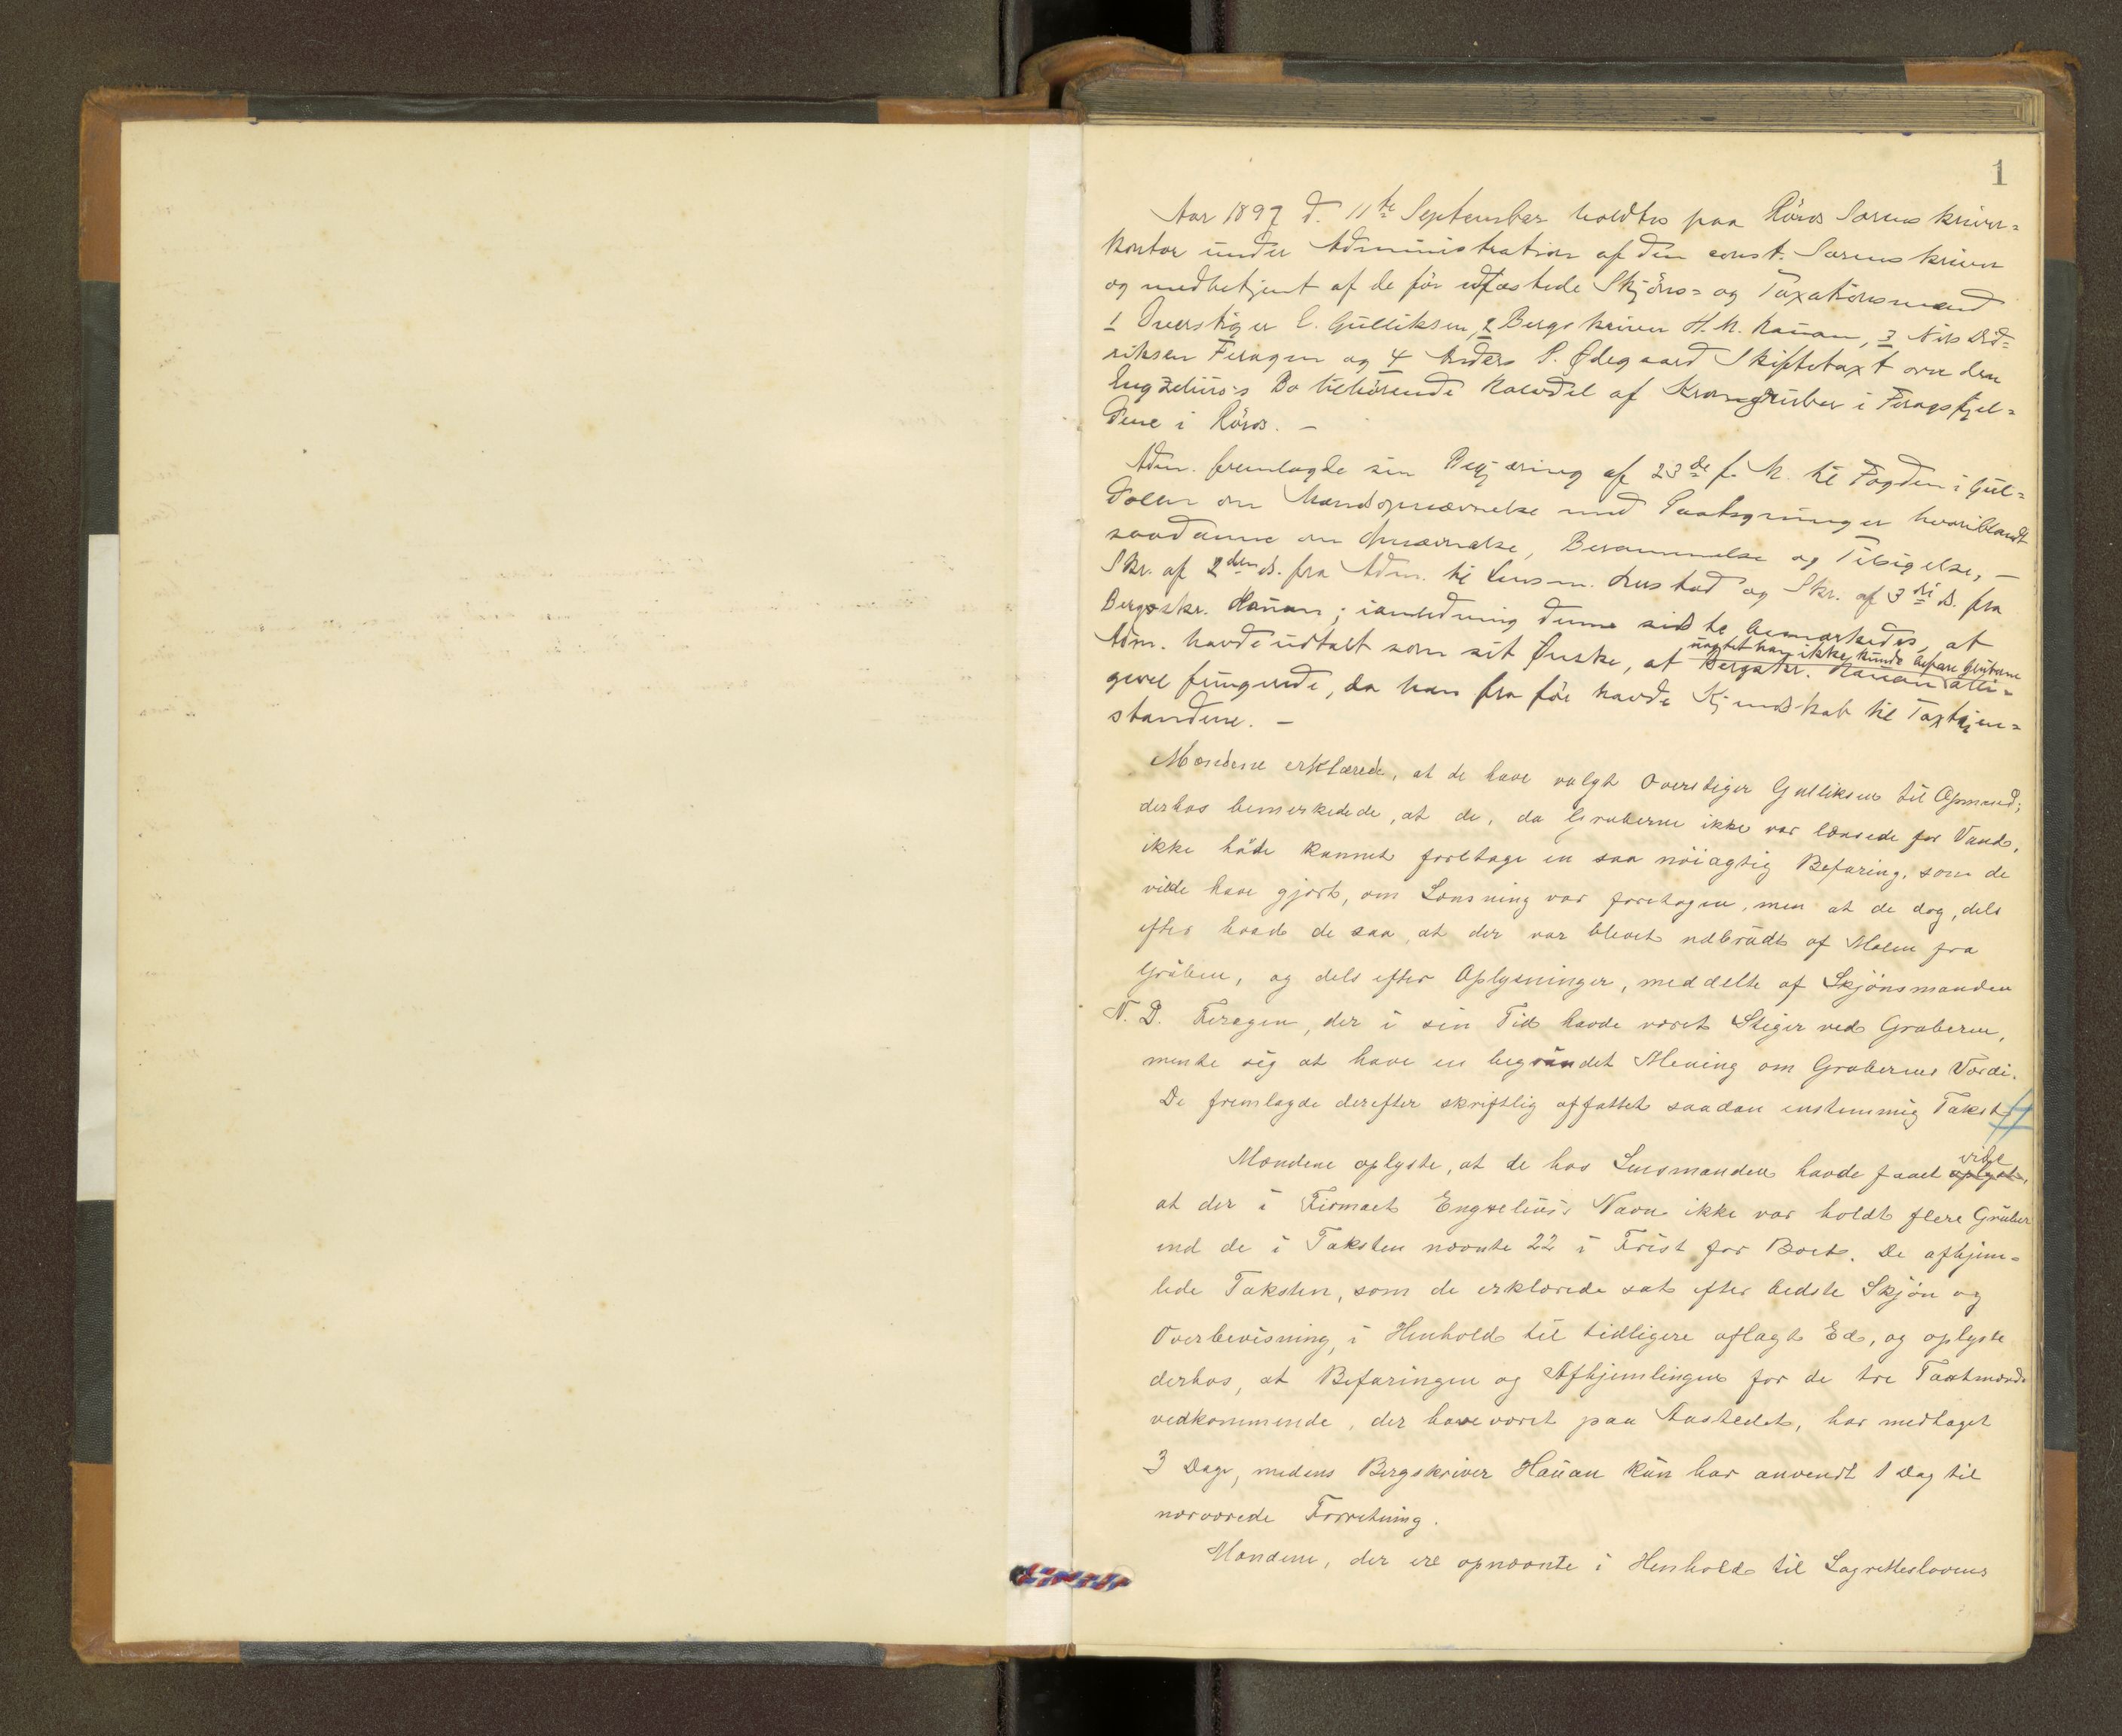 1
Aar 1897 d. 11te September holdtes paa Röros Sorenskriver=
kontor under Administration af den const. Sorenskriver
og medbetjent af de før udfæstede Skjöns= og Taxationsmænd
1 Overstiger C. Gulliksen, 2 Bergskriver H. M. Hauan, 3 Nils Did=
riksen Feragen og 4 Anders P. Ødegaard Skiftetaxt over den
Engzelius's Bo tilhörende Halvdel af Kromgruber i Feragsfjel=
dene i Röros. —
Adm. fremlagde sin Begjæring af 23de f. M. til Fogden i Gul=
dalen om Mandsopnævnelse med Paategninger hvoriblandt
saadanne om Opnævnelse, Berammelse og Tilsigelse, —
Skr. af 2den ds. fra Adm. til Lensm. og Skr. af 3die ds. fra
Bergskr. Hauan; i anledning denne sidste bemærkedes, at
Adm. havde udtalt som sit Ønske, at Bergskr. Hauan uagtet han ikke kunde befare Gruberne alli=
gevel fungerede, da han fra før havde Kjendskab til Taxtgjen=
standene. —
Mændene erklærede, at de have valgt Overstiger Gulliksen til Opmand;
derhos bemerkedede, at de, da Gruberne ikke var lænsede for Vand,
ikke havde kunnet foretage en saa nöiagtig Befaring, som de
vilde have gjort, om Lænsning var foretagen, men at de dog, dels
efter hvad de saa, at der var blevet udbrudt af Malm fra
Gruben, og dels efter Oplysninger, meddelte af Skjönsmanden
N. D. Feragen, der i sin Tid havde været Stiger ved Gruberne,
mente sig at have en begrundet Mening om Grubernes Værdi.
De fremlagde derefter skriftlig affattet saadan enstemmig Takst #
Mændene oplyste, at de hos Lensmanden havde faaet oplyst, vide
at der i Firmaet Engzelius's Navn ikke var holdt flere Gruber
end de i Taksten nævnte 22 i Frist for Boet. De afhjem=
lede Taksten, som de erklærede sat efter bedste Skjön og
Overbevisning, i Henhold til tidligere aflagt Ed, og oplyste
derhos, at Befaringen og Afhjemlingen for de tre Taxtmænds
vedkommende, der have været paa Aastedet, har medtaget
3 Dage, medens Bergskriver Hauan kun har anvendt 1 Dag til
nærværede Forretning.
Mændene, der ere opnævnte i Henhold til Lagretteslovens